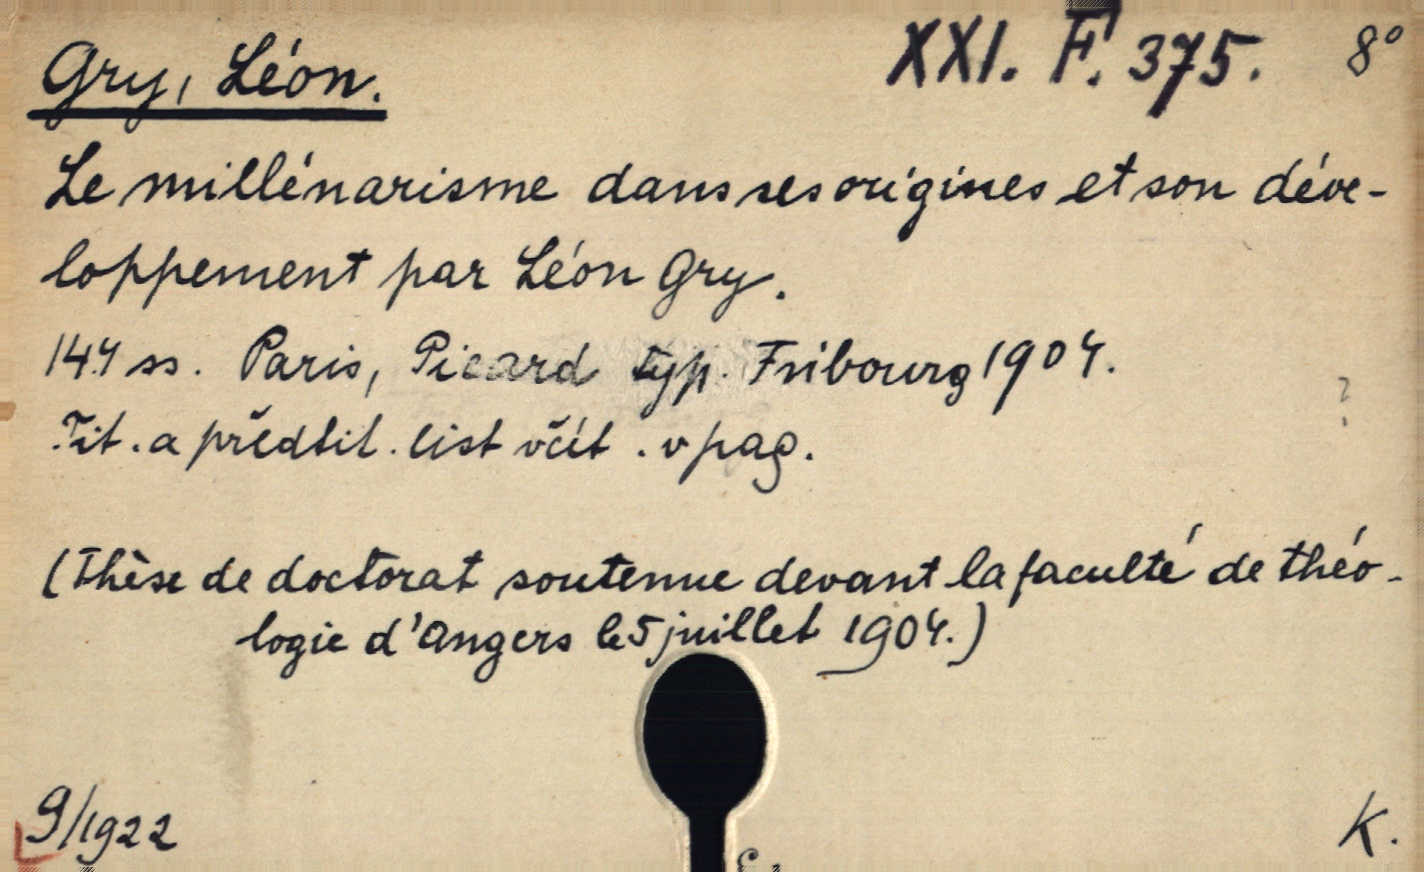 Gry, Léon. XXI. F. 375. 8°
Le millénarisme dans ses origines et son déve-
loppement par Léon Gry.
144 ss. Paris, Picard typ. Fribourg 1904.
Tit. a předtit. list včít. v pag.
(Thèse de doctorat soutenue devant la faculté de théo-
logie d'Angers le 5 juillet 1904.)
9/1922 K.